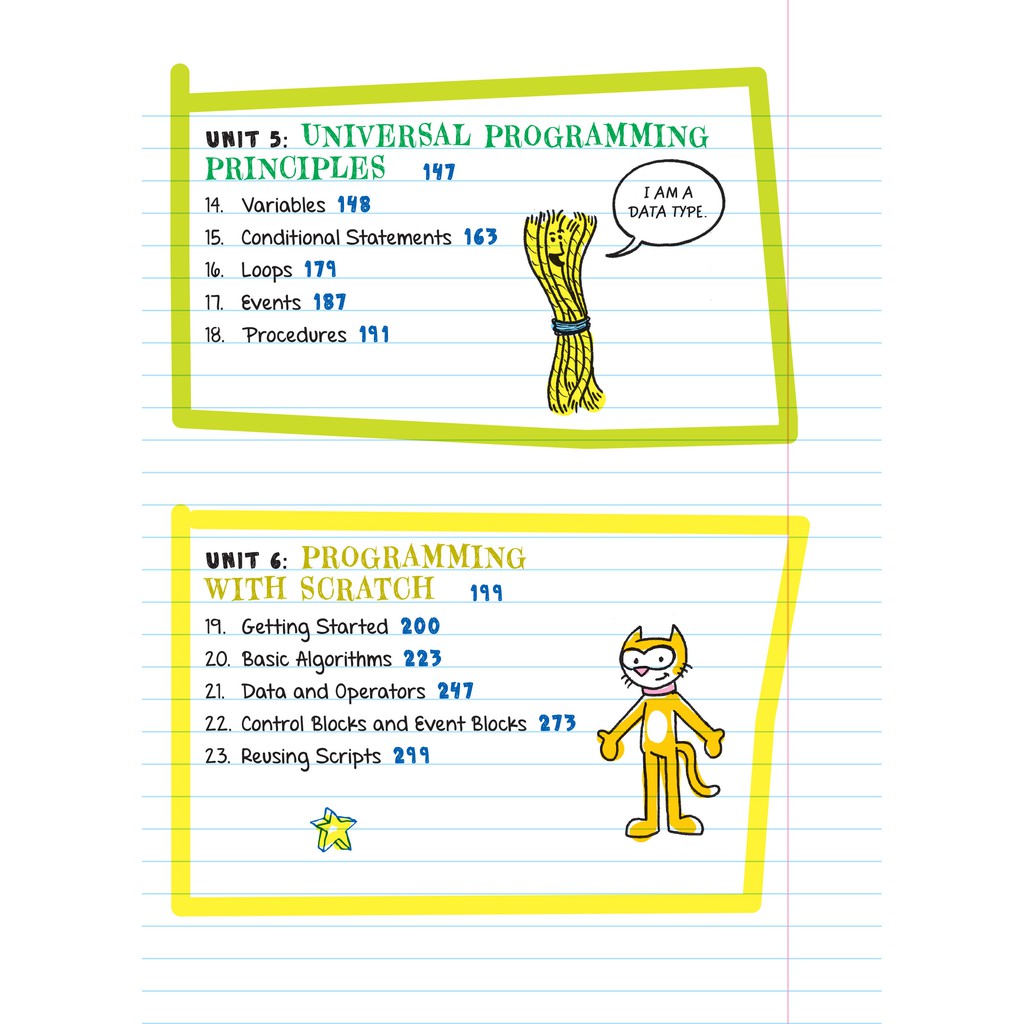 UNIT 5: UNIVERSAL PROGRAMMING
PRINCIPLES 147
14. Variables 148
15. Conditional Statements 163
16. Loops 179
17. Events 187
18. Procedures 191
I AM A
DATA TYPE.
UNIT 6: PROGRAMMING
WITH SCRATCH 199
19. Getting Started 200
20. Basic Algorithms 223
21. Data and Operators 247
22. Control Blocks and Event Blocks 273
23. Reusing Scripts 299